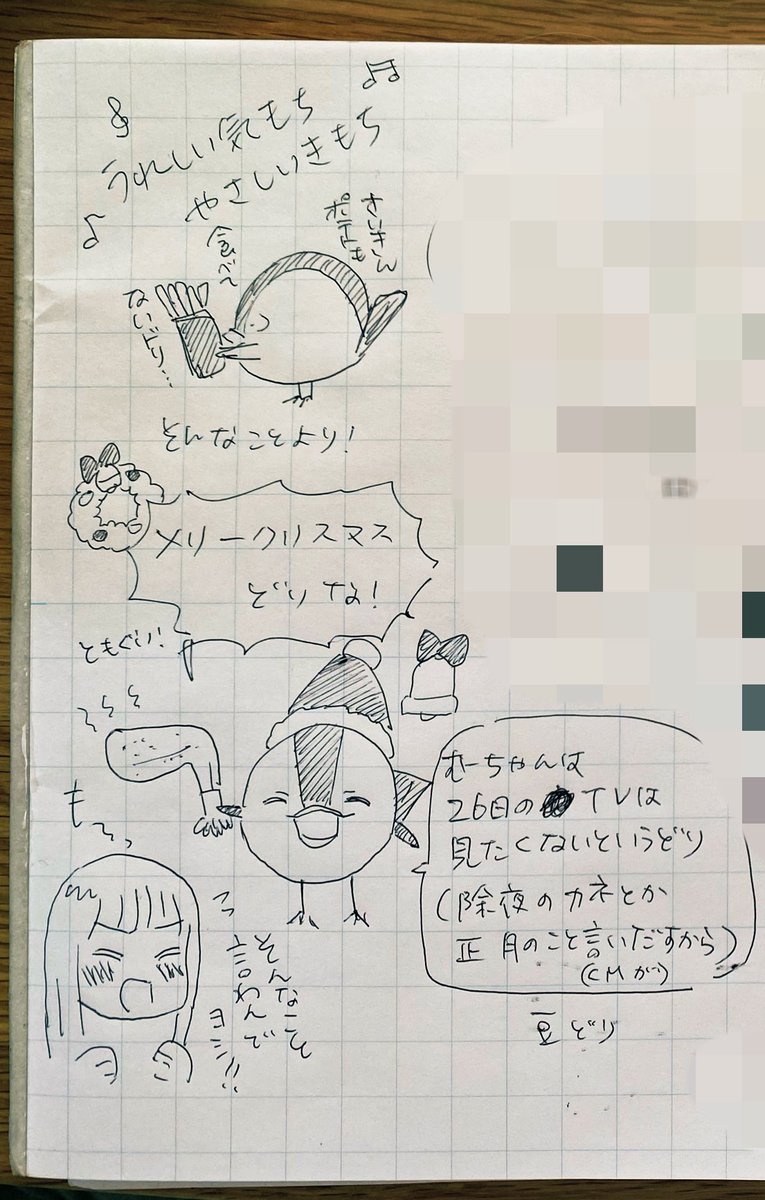 うれしい気もち
やさしいきもち
さいきん
ポテトも
食べて
ないどり…
そんなことより!
メリークリスマス
どりな!
ともぐい!
むーちゃんは
26日の TVは
見たくないというどり
(除夜のカネとか
正月のこと言いだすから)
(CMが)
も〜っ
そんなこと
言わんで
ヨシ!!
豆どり